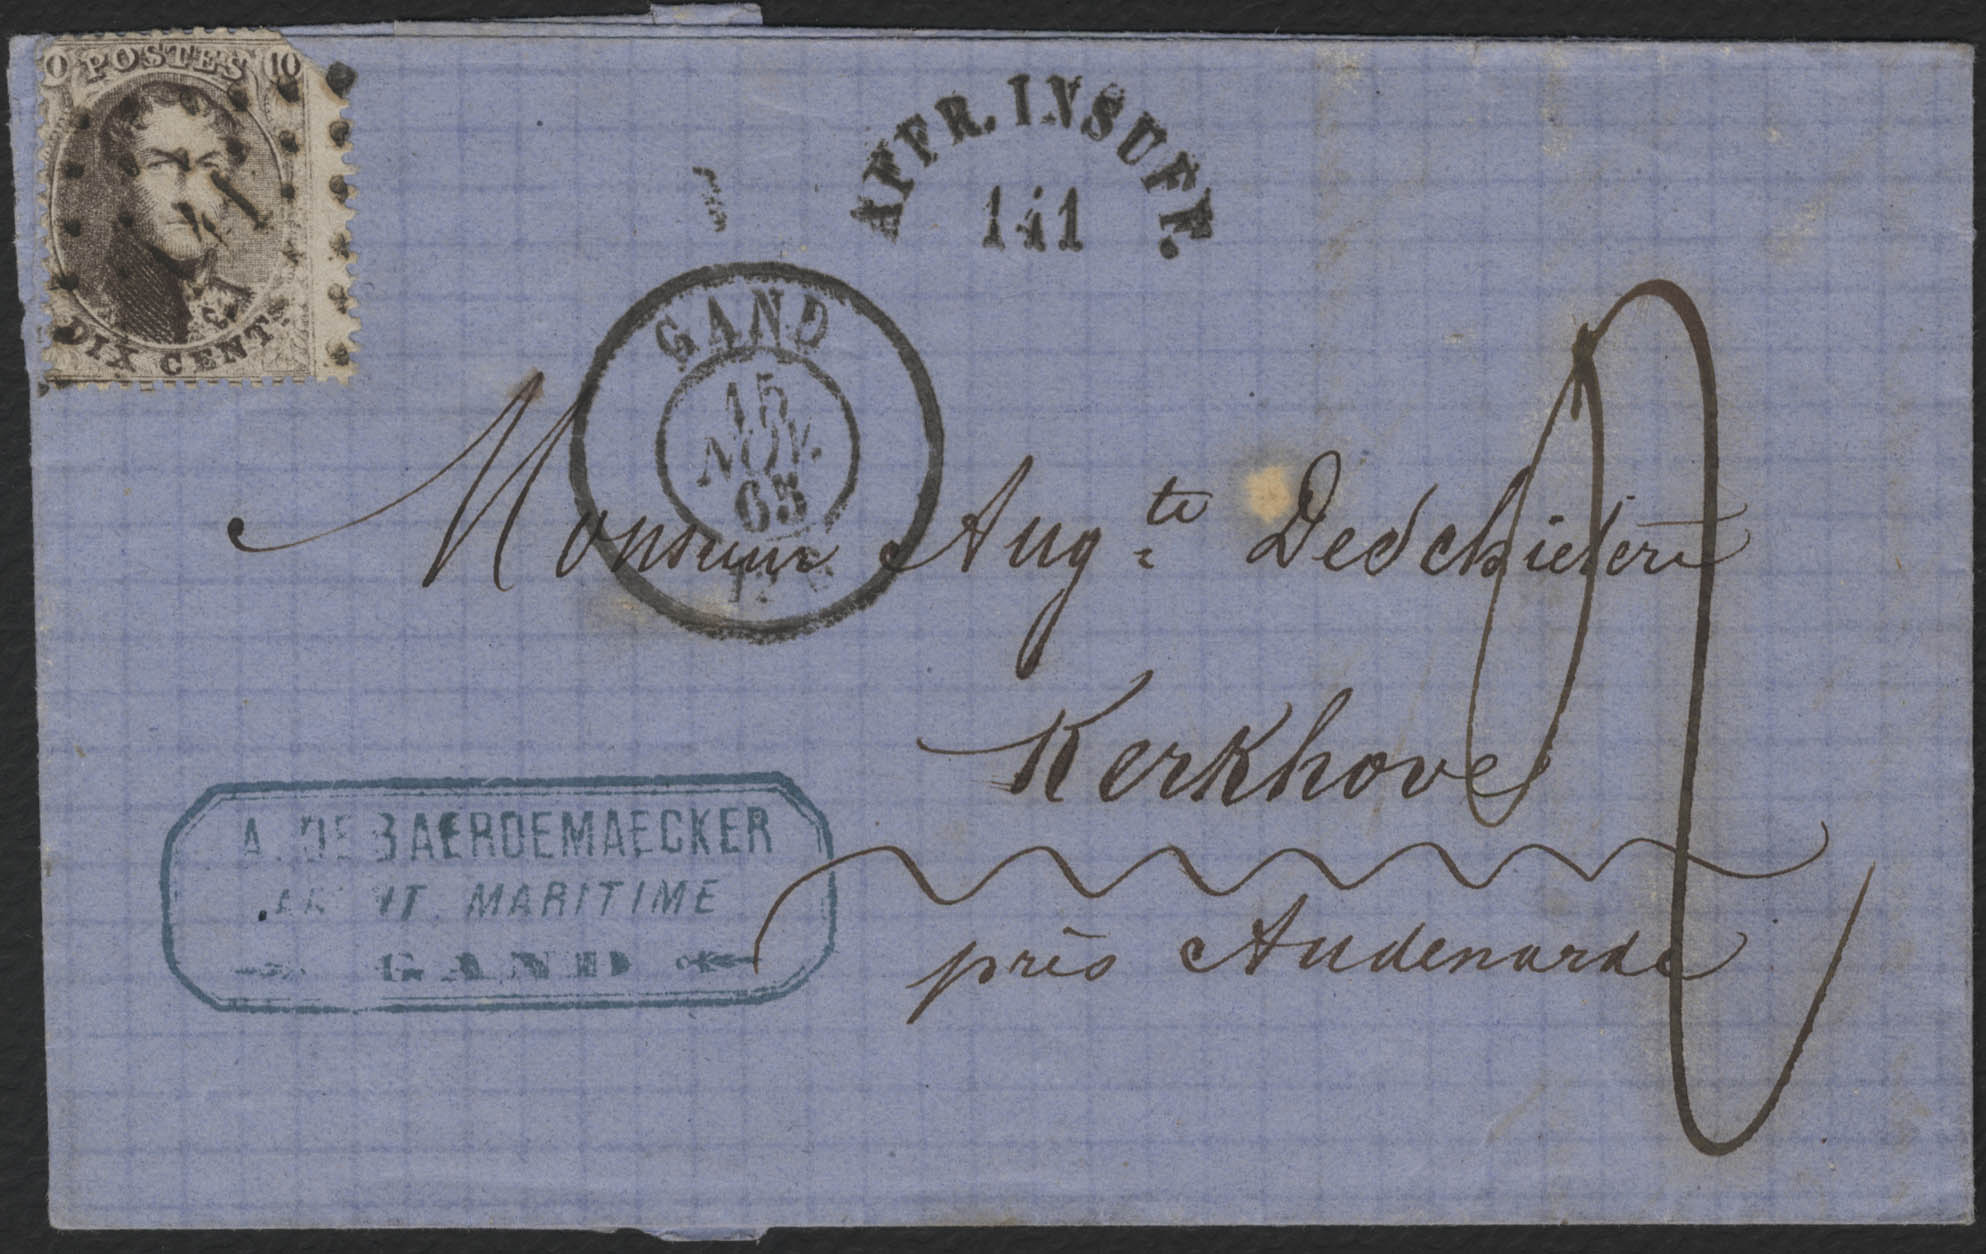 POSTES 10
DIX CENTS
AFFR. INSUFF.
141
GAND
15
NOV.
65
Monsieur Aug.te Dedchielere
Kerkhove
près Audenarde
A. DE BAERDEMAECKER
MARITIME
GAND